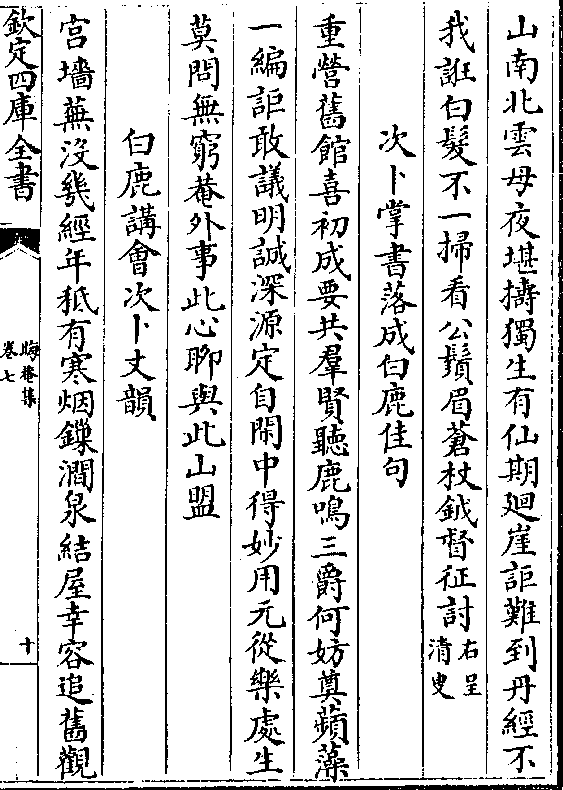 山南北雲母夜堪擣獨生有仙期廻崖詎難到丹經不
我誑白髮不一掃看公鬚眉蒼杖鉞督征討右呈清叟
次卜掌書落成白鹿佳句
重營舊館喜初成要共羣賢聽鹿鳴三爵何妨奠蘋藻
一編詎敢議明誠深源定自閒中得妙用元從樂處生
莫問無窮菴外事此心聊與此山盟
白鹿講會次卜丈韻
宮墻蕪没幾經年秪有寒烟鏁澗泉結屋幸容追舊觀
欽定四庫全書
晦菴集
卷七
十